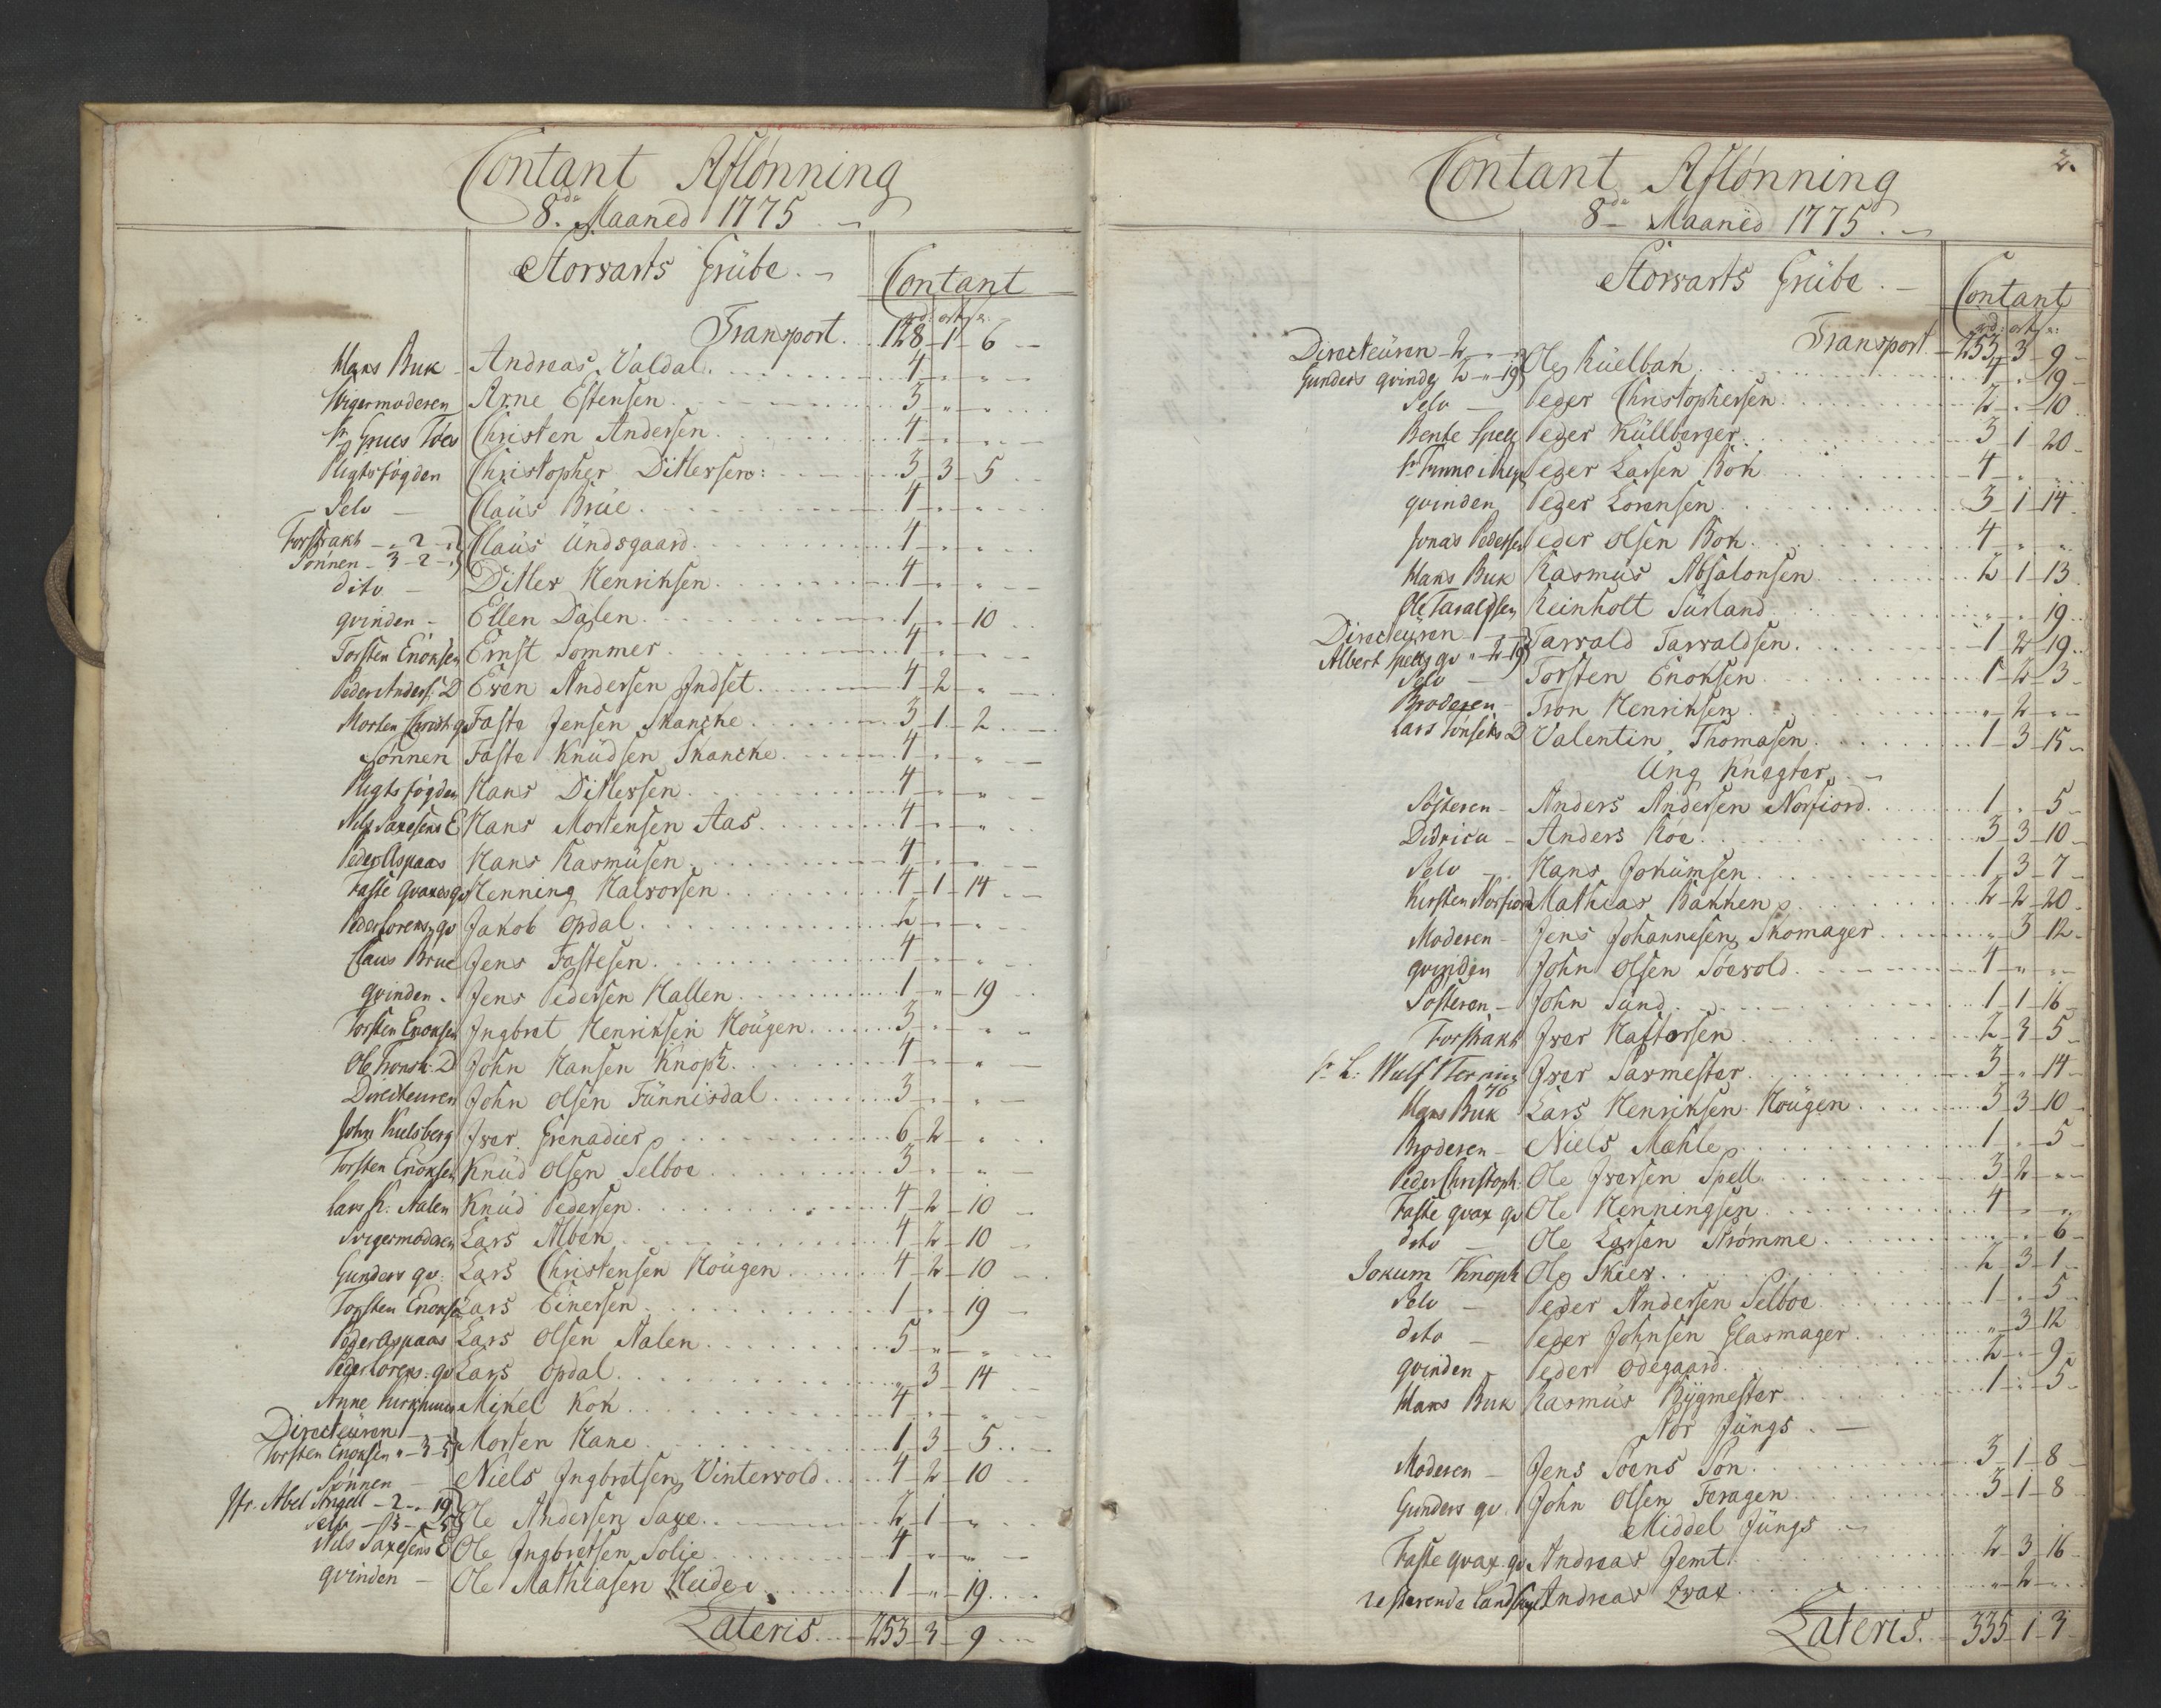 Contant Aflönning
8de Maaned 1775
Storwarts Grübe
Contant
rd: ort s:
Transport 128 1 6
Hans Buk Andreas Valdal 4 " "
Svigermoderen Arne Estensen 3 " "
Sr Grues Töes Christen Andersen 4 " "
Pligtsfogden Christopher Ditlefsen: 3 3 5
Selv Claüs Brüe 4 " "
Forstrakt " 2 "
Sönnen 3 2 " Claüs Ündsgaard 4 " "
dito Ditlev Henriksen 4 " "
qvinden Ellen Dalen 1 " 10
Torsten Enoksen Ernst Sommer 4 " "
Peder Anders: D Even Andersen Indset 4 2 "
Morten Christ: q Faste Jensen Skancke 3 1 2
Sönnen Faste Knüdsen Skancke 4 " "
Pligts fogden Hans Ditlefsen 4 " "
Nils Saxesens E Hans Mortensen Aas 4 " "
Peder Aspaas Hans Rasmüsen 4 " "
Faste Qvaxes qv Henning Halvorsen 4 1 14
Peder Lorens: qv Jakob Opdal 2 " "
Claus Brue Jens Fastesen 4 " "
qvinden Jens Pedersen Hallen 1 " 19
Torsten Enoksen Ingbret Henriksen Hougen 3 " "
Ole Tronsk: D John Hansen Knoph 4 " "
Directeuren John Olsen Fünnisdal 3 " "
John Kulsberg Iver Grenadier 6 2 "
Torsten Enoksen Knüd Olsen Selboe 3 " "
Lars H: Aalen Knüd Pedersen 4 2 10
Svigermoderen Lars Alben 4 2 10
Gunders qv: Lars Christensen Hoügen 4 2 10
Torsten Enoksen Lars Einersen 1 " 19
Peder Aspaas Lars Olsen Aalen 5 " "
Peder Lorens: qv Lars Opdal " 3 14
Anne Mikel Kok 4 " "
Directeüren 1 " "
Torsten Enoksen " 3 5 Morten Kane 1 3 5
Sönnen Niels Ingbretsen Vintervold 4 2 10
Jfr. Abel Angell 2 " 19
Selv Ole Andersen Saxe 2 1 "
Nils Saxesens E Ole Ingbretsen Solie 4 " "
qvinden Ole Mathiasen Heide 1 " 19
Lateris 253 3 9
2.
Contant Aflönning
8de Maaned 1775
Storwarts Grübe
Contant
rd: ort s:
Transport 253 3 9
Directeüren 2 " "
Gunders qvinde 2 " 19 Ole Küelbak 4 " 19
Selv Peder Christophersen 2 " 10
Bente Spell Peder Küllberger 3 1 20
Peder Larsen Bok 4 " "
qvinden Peder Lorensen 3 1 14
Jonas Pedersen Peder Olsen Bok 4 " "
Hans Buk Rasmüs Absalonsen 2 1 13
Ole Taraldsen Reinholt Sürland " " 19
Directeüren 1 " "
Albert Spells qv " 2 19 Tarvald Tarvaldsen 1 2 19
Selv Torsten Enoksen 1 2 3
Broderen Tron Henriksen " 2 "
Lars D Valentin Thomasen 1 3 15
Ung Knegter
Sösteren Anders Andersen Norfiord 1 " 5
Didrica Anders Roe 3 3 10
Selv Hans Jokümsen 1 3 7
Kirsten Norfiord Mathias Bakken 2 2 20
Moderen Jens Johannesen Skomager " 3 12
qvinden John Olsen Söevold 4 " "
Sösteren John Sünd 1 1 16
Forstrakt Iver Hattersen 2 3 5
Sr L: Wulf Iver Sarmester 3 " 14
Hans Buk Lars Henriksen Hoügen 3 3 10
Broderen Niels Mahle 1 " 5
Peder Christoph: Ole Iversen Spell 3 2 "
Faste qvax qv Ole Henningsen 4 " "
dito Ole Larsen Strömme " " 6
Jokum Knoph Ole Skier 2 3 1
Selv Peder Andersen Selboe 1 " 5
dito Peder Johnsen Glasmager " 3 12
qvinden Peder Ödegaard 2 " 9
Hans Buk Rasmüs Bygmester 1 " 5
Stor Jüngs
Moderen Jens Soens Sön 3 1 8
Gunders qv: John Olsen Feragen 3 1 8
Middel Jüngs
Faste qvax: qv Andreas Jemt 2 3 16
Andreas Qvax " 2 "
Lateris 335 1 3